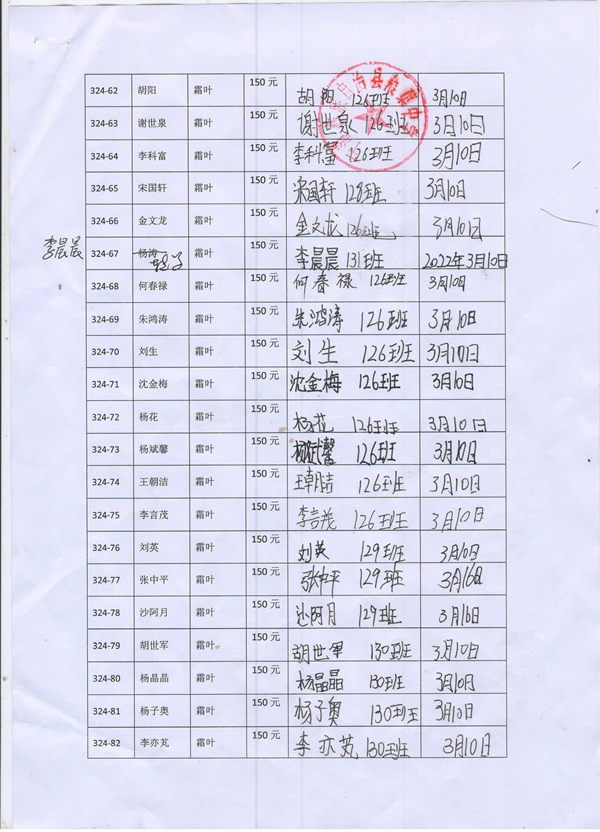 324-62 胡阳 霜叶 150 元 胡阳 126班 3月10日
324-63 谢世泉 霜叶 150 元 谢世泉 126班 3月10日
324-64 李科富 霜叶 150 元 李科富 126班 3月10日
324-65 宋国轩 霜叶 150 元 宋国轩 128班 3月10日
324-66 金文龙 霜叶 150 元 金文龙 126班 3月10日
李晨晨 324-67 杨涛 霜叶 150 元 李晨晨 131班 2022年3月10日
324-68 何春禄 霜叶 150 元 何春禄 126班 3月10日
324-69 朱鸿涛 霜叶 150 元 朱鸿涛 126班 3月10日
324-70 刘生 霜叶 150 元 刘生 126班 3月10日
324-71 沈金梅 霜叶 150 元 沈金梅 126班 3月10日
324-72 杨花 霜叶 150 元 杨花 126班 3月10日
324-73 杨斌馨 霜叶 150 元 杨斌馨 126班 3月10日
324-74 王朝洁 霜叶 150 元 王朝洁 126班 3月10日
324-75 李言茂 霜叶 150 元 李言茂 126班 3月10日
324-76 刘英 霜叶 150 元 刘英 129班 3月10日
324-77 张中平 霜叶 150 元 张中平 129班 3月16日
324-78 沙阿月 霜叶 150 元 沙阿月 129班 3月16日
324-79 胡世军 霜叶 150 元 胡世军 130班 3月10日
324-80 杨晶晶 霜叶 150 元 杨晶晶 130班 3月10日
324-81 杨子奥 霜叶 150 元 杨子奥 130班 3月10日
324-82 李亦芃 霜叶 150 元 李亦芃 130班 3月10日